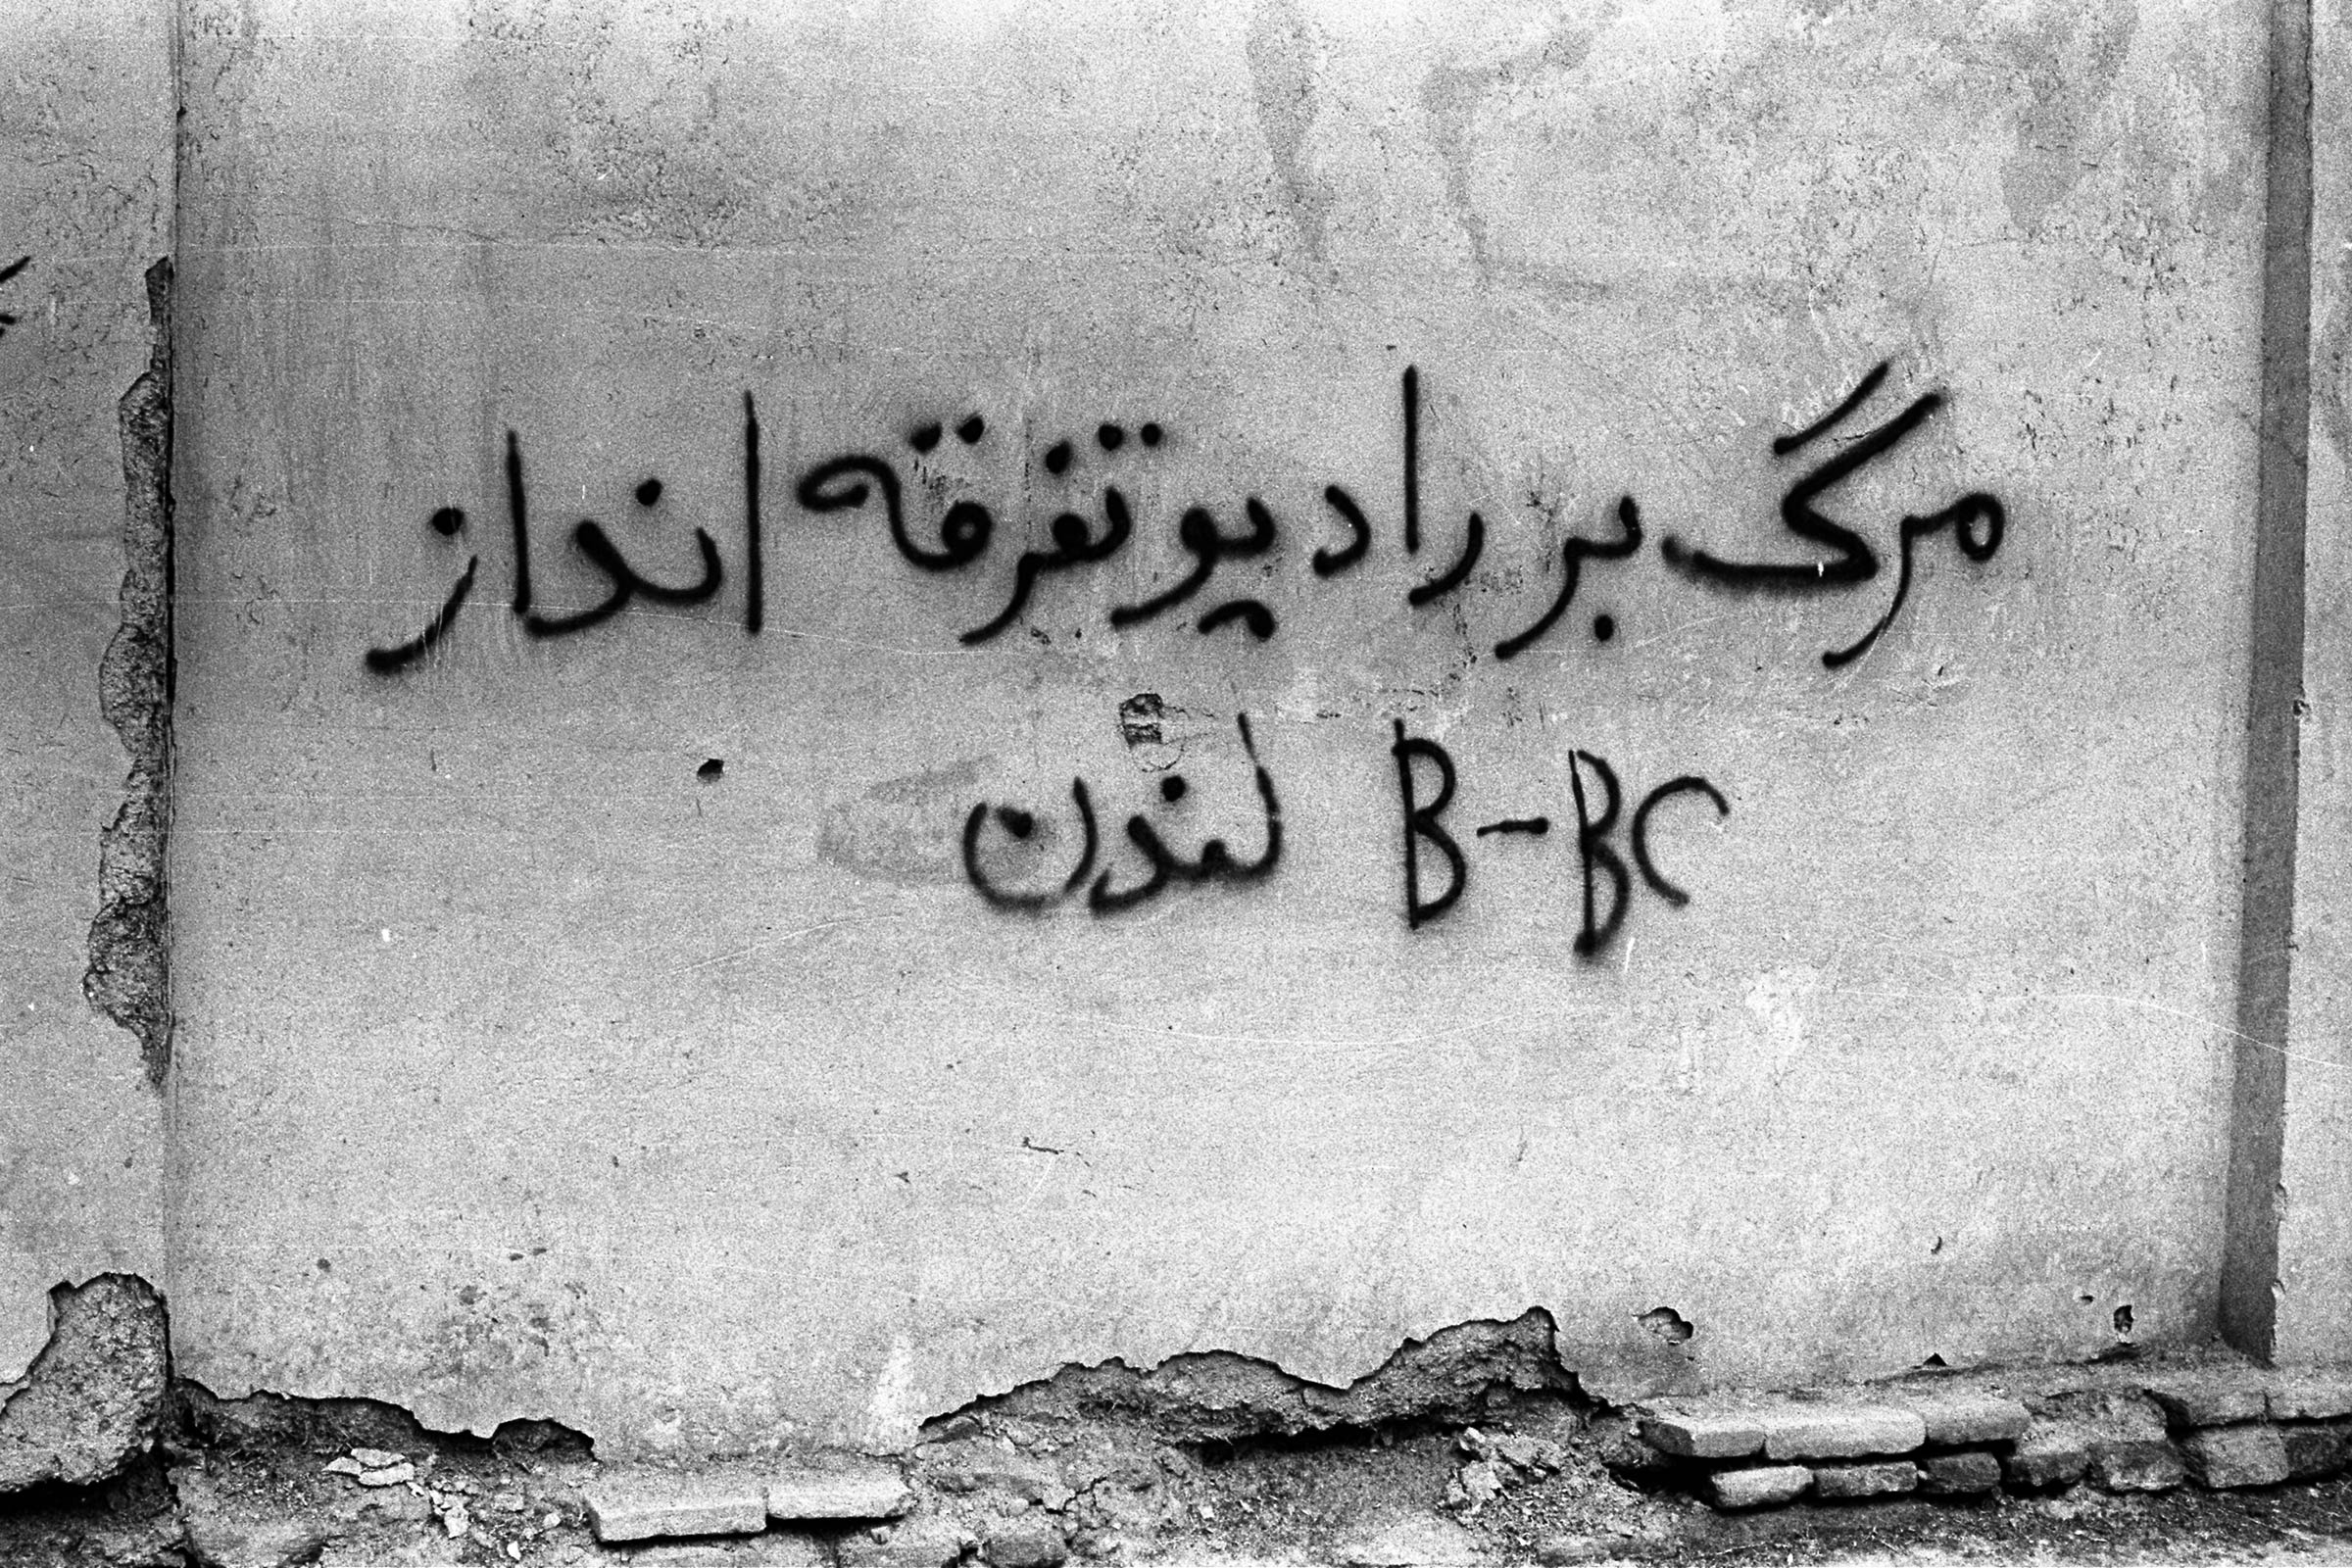 مرگ بر رادیو تفرقه انداز
B-BC لندن